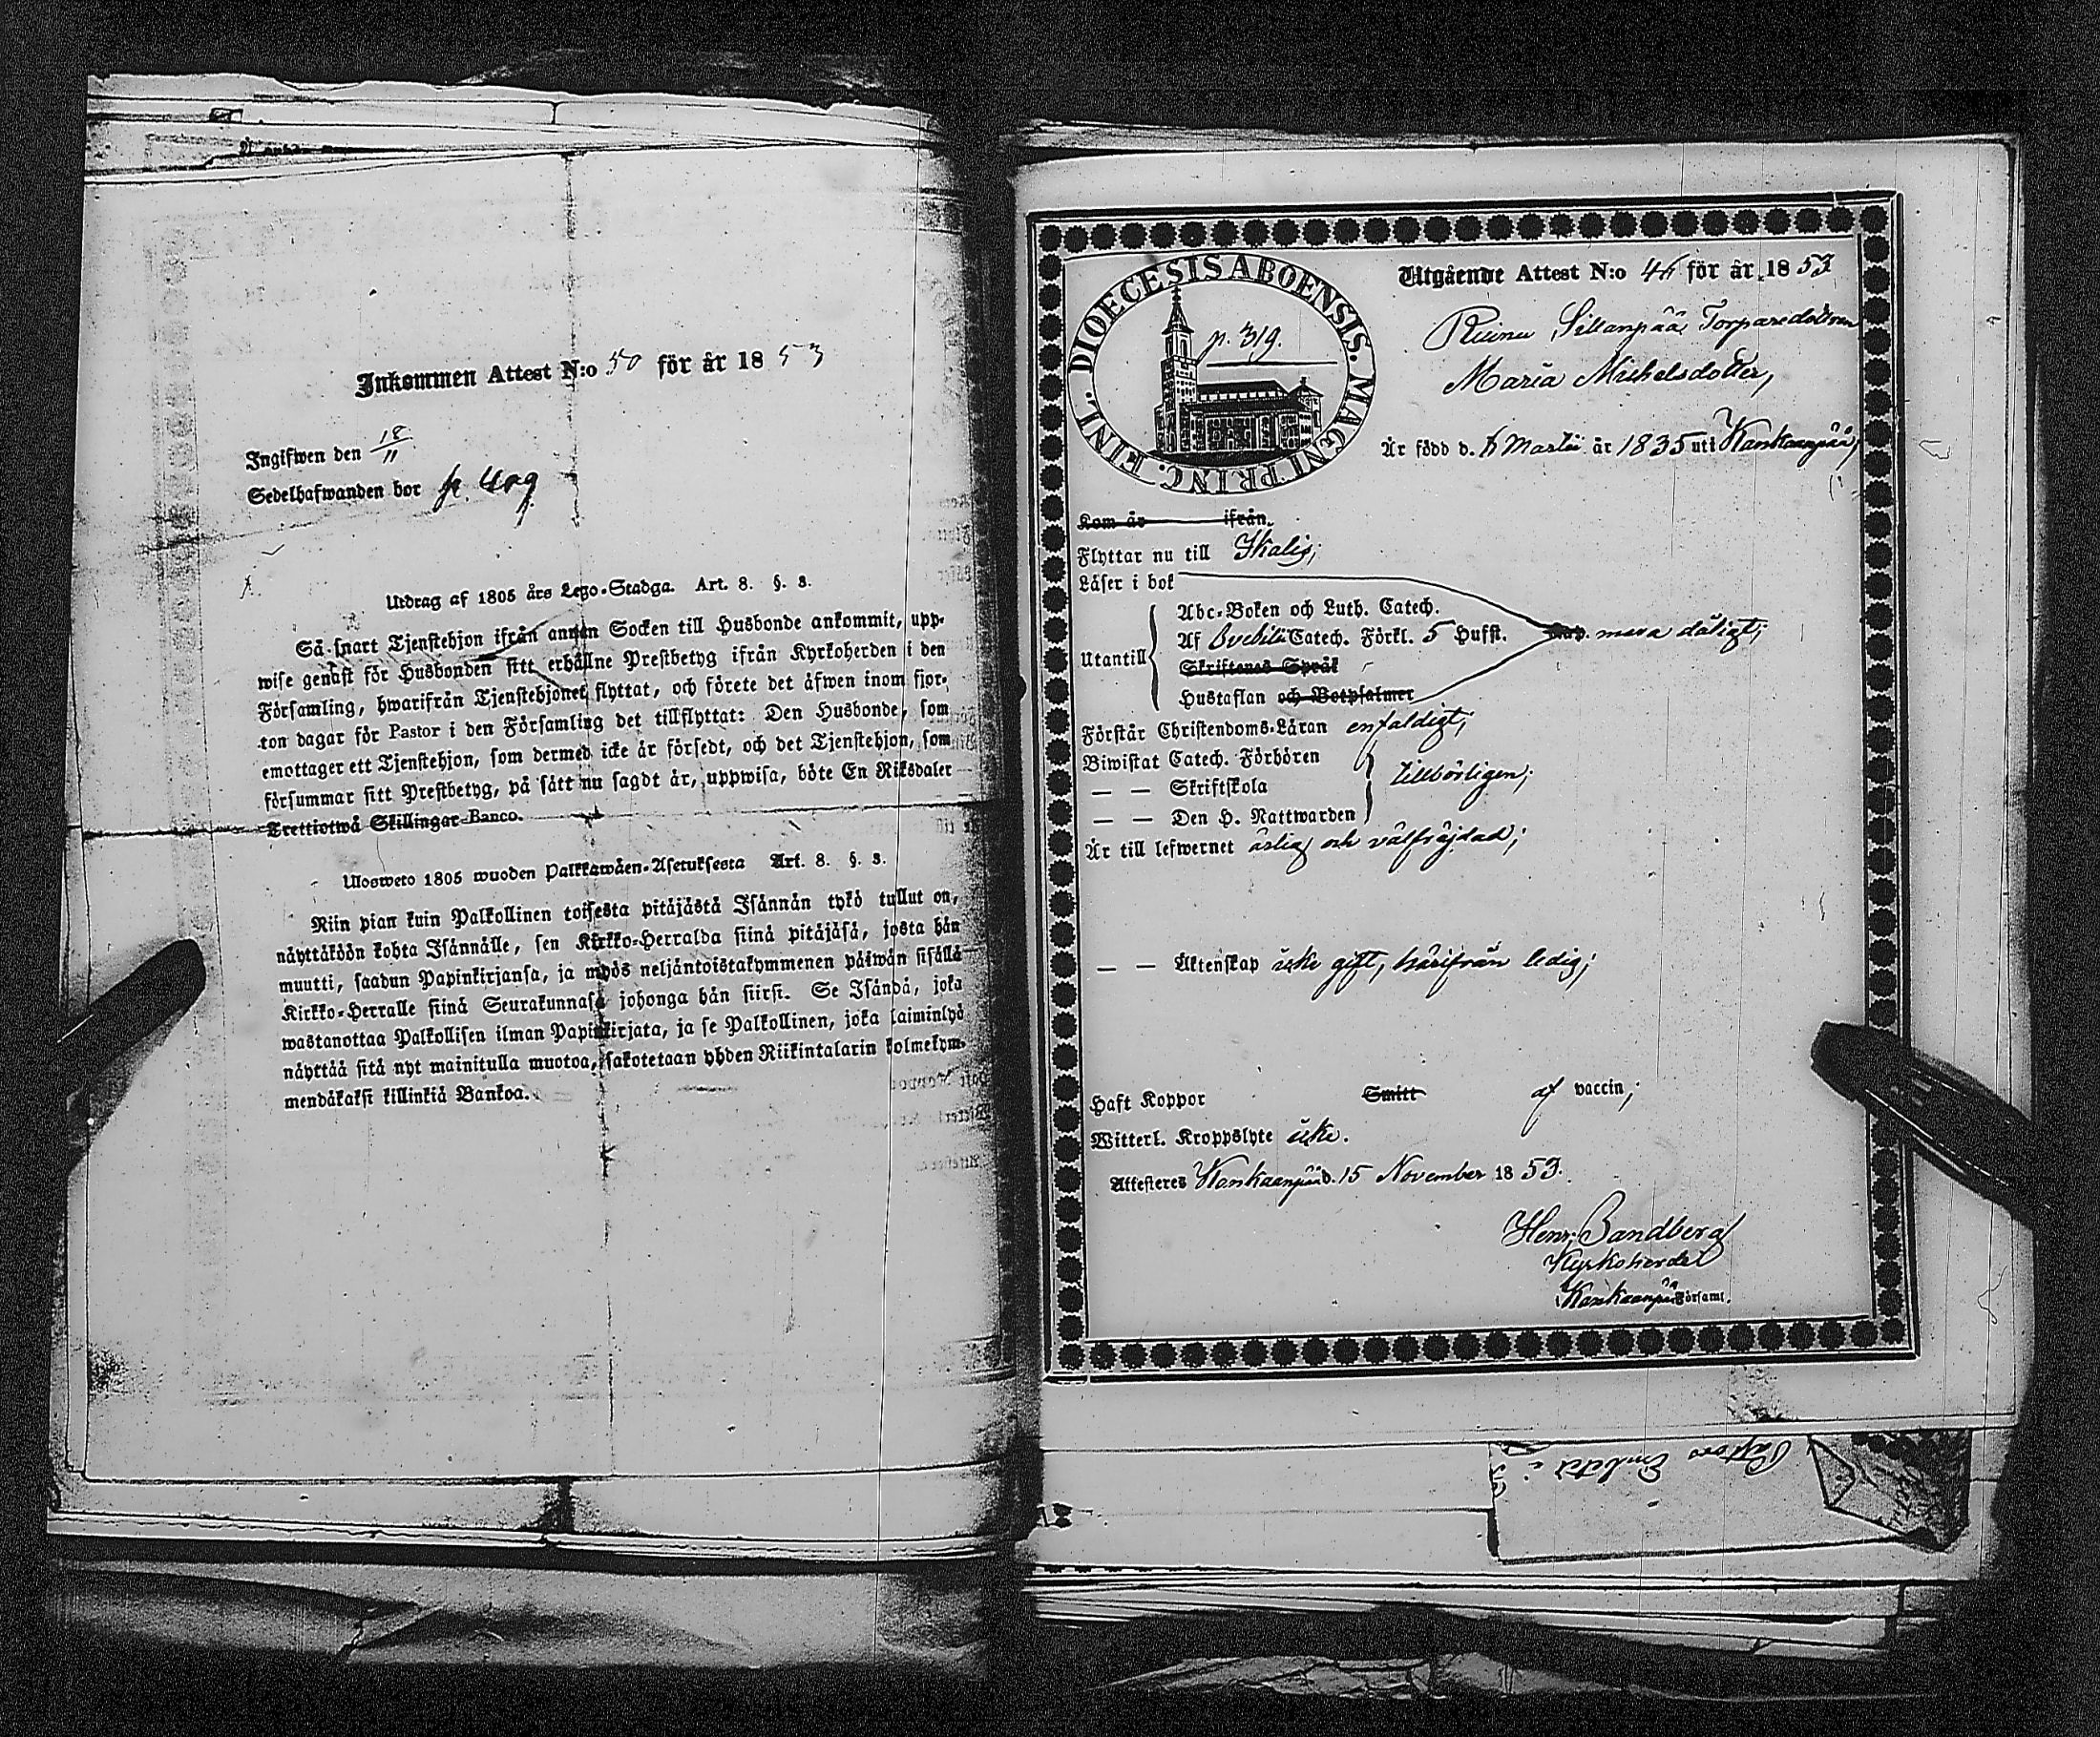 Inkommen Attest N:o 50 för år 1853
Ingifwen den 18/11
Sedelhafwanden bor
Utdrag af 1805 års Lego-Stadga. Art. 8. §. 3.
Så snart Tjenstehjon ifrån annan Socken till Husbonde ankommit, upp-
wise genast för Husbonden sitt erhållne Prestbetyg ifrån Kyrkoherden i den
Församling, hwarifrån Tjenstehjonet flyttat, och förete det äfwen inom fjor-
ton dagar för Pastor i den Församling det tillflyttat: Den Husbonde, som
emottager ett Tjenstehjon, som dermed icke är försedt, och det Tjenstehjon, som
försummar sitt Prestbetyg, på sätt nu sagdt är, uppwisa, böte En Riksdaler
Trettiotwå Skillingar Banco.
Ulosweto 1805 wuoden Palkkawäen-Asetuksesta Art. 8. §. 3.
Niin pian kuin Palkollinen toisesta pitäjästä Isännän tykö tullut on,
näyttäköön kohta Isännälle, sen Kirkko-Herralda siinä pitäjäsä, josta hän
muutti, saadun Papinkirjansa, ja myös neljäntoistakymmenen päiwän sisällä
Kirkko-Herralle siinä Seurakunnasa johonga hän siirsi. Se Isändä, joka
wastanottaa Palkollisen ilman Papinkirjata, ja se Palkollinen, joka laiminlyö
näyttää sitä nyt mainitulla muotoa, sakotetaan yhden Riikintalarin kolmekym-
mendäkaksi killinkiä Bankoa.
DIOECESIS ABOENSIS. MAGNI PRINC. FINL.
p. 319.
Utgående Attest N:o 46 för år 1853
Sillanpää Torparedottren
Maria Michelsdotter,
Är född d. 6 Martii år 1835 uti Kankaanpää,
Kom år ifrån
Flyttar nu till Ikalis;
Läser i bok
Utantill
Abc-Boken och Luth. Catech.
Af Svebilii Catech. Förkl. 5 Hufst. mera dåligt;
Skriftenes Språk
Hustaflan och Botpsalmer
Förstår Christendoms-Läran enfaldigt;
Biwistat Catech. Förhören
— — Skriftskola tillbörligen;
— — Den H. Nattwarden
Är till lefwernet ärlig och välfräjdad;
— — Äktenskap icke gift, härifrån ledig;
Haft Koppor Smitt af vaccin;
Witterl. Kroppslyte icke.
Attesteres Kankaanpää d. 15 November 1853.
Henr. Sandberg
Kyrkoherde
i Kankaanpää Församl.